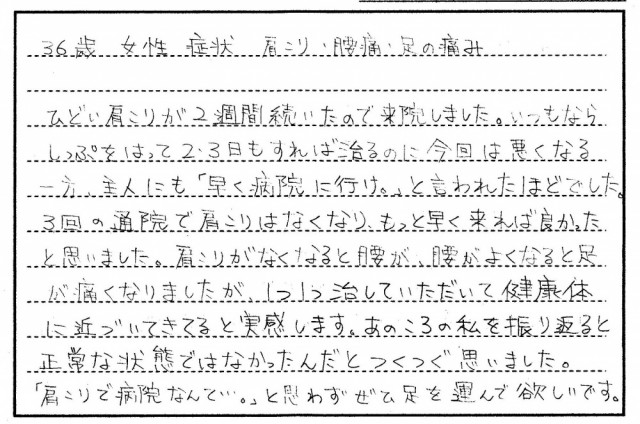 36歳 女性 症状 肩こり・腰痛・足の痛み
ひどい肩こりが2週間続いたので来院しました。いつもなら
しっぷをはって2・3日もすれば治るのに今回は悪くなる
一方、主人にも「早く病院に行け。」と言われたほどでした。
3回の通院で肩こりはなくなり、もっと早く来れば良かった
と思いました。肩こりがなくなると腰が、腰がよくなると足
が痛くなりましたが、1つ1つ治していただいて健康体
に近づいてきてると実感します。あのころの私を振り返ると
正常な状態ではなかったんだとつくづく思いました。
「肩こりで病院なんて…。」と思わずぜひ足を運んで欲しいです。